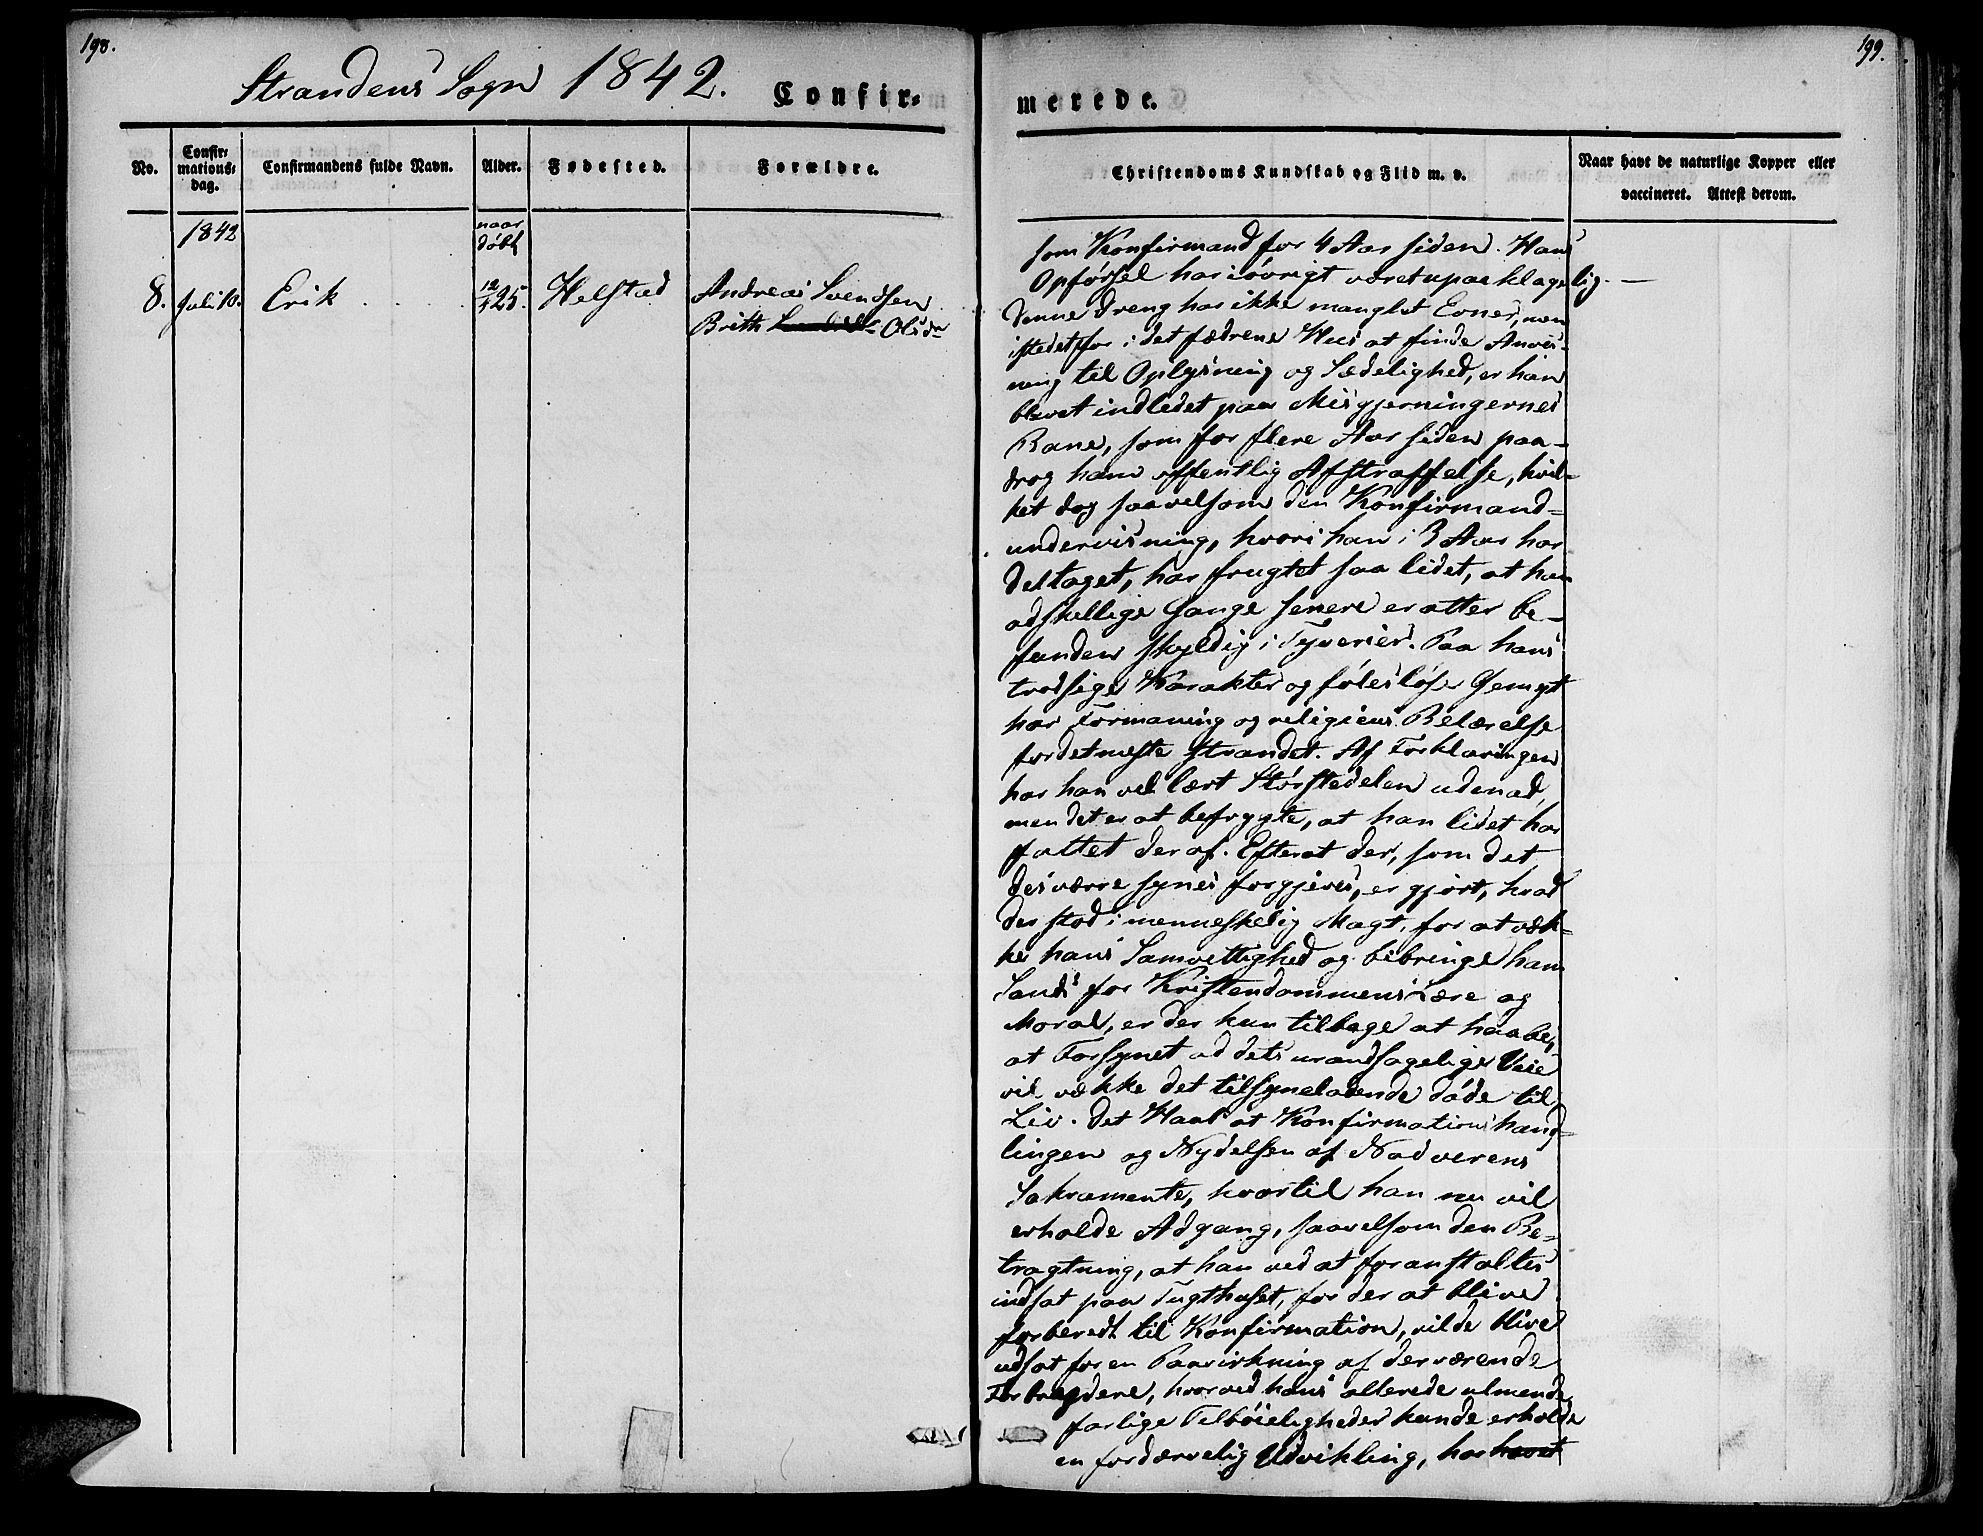 198.
Strandens Sogn 1842. Confir-
No.
Confir-
mations-
dag.
Confirmandens fulde Navn.
Alder.
Fødested.
Forældre.
1842
naar
døbt
8. Juli 10. Erik 12/1 25. Helstad Andreas Svendsen
Brith Olsdr
199.
merede.
Christendoms Kundskab og Flid m. v.
Naar havt de naturlige Kopper eller
vaccineret. Attest derom.
som Konfirmand for 4 Aar siden. Hans
Opførsel har iøvrigt været upaaklagelig. —
Denne Dreng har ikke manglet Evner, men
istedetfor i det fædrene Huus at finde Anvis-
ning til Oplysning og Sædelighed, er han
blevet indledet paa Misgjerningernes
Bane, som for flere Aar siden paa-
drog ham offentlig Afstraffelse, hvil-
ket dog saavelsom den Konfirmand-
undervisning, hvori han i 3 Aar har
deltaget, har frugtet saa lidet, at han
adskillige Gange senere er atter be-
funden skyldig i Tyverier. Paa hans
trodsige Karakter og følesløse Gemyt
har Formaning og religieus Belærelse
fordetmeste strandet. Af Forklaringen
har han vel lært Størstedelen udenad,
men det er at befrygte, at han lidet har
fattet deraf. Efterat der, som det
desværre synes forgjeves, er gjort, hvad
der stod i menneskelig Magt, for at væk-
ke hans Samvittighed og bibringe ham
Sands for Kristendommens Lære og
Moral, er der kun tilbage at haabe,
at Forsynet ad dets urandsagelige Veie
vil vække det tilsyneladende døde til
Liv. Det Haab at Konfirmationshand-
lingen og Nydelsen af Nadverens
Sakramente, hvortil han nu vil
erholde Adgang, saavelsom den Be-
tragtning, at han ved at foranstaltes
indsat paa Tugthuset, for der at blive
forberedt til Konfirmation, vilde blive
udsat for en Paavirkning af derværende
Forbrydere, hvorved hans allerede ulmende
farlige Tilbøieligheder kunde erholde
en fordærvelig Udvikling, har havt